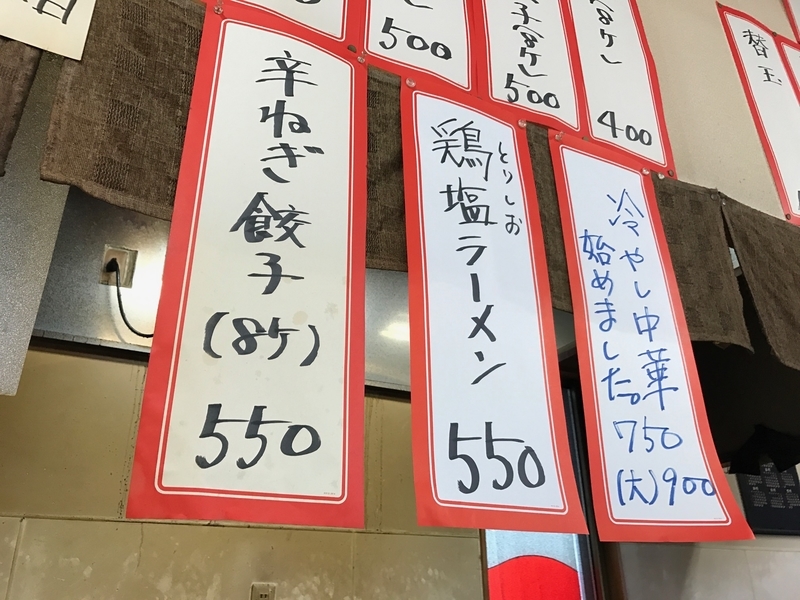 辛ねぎ餃子
(8ケ)
550
鶏塩ラーメン
とりしお
550
冷やし中華
始めました。
750
(大)900
し
500
子(8ケ)
500
(8ケ)
400
替玉
日